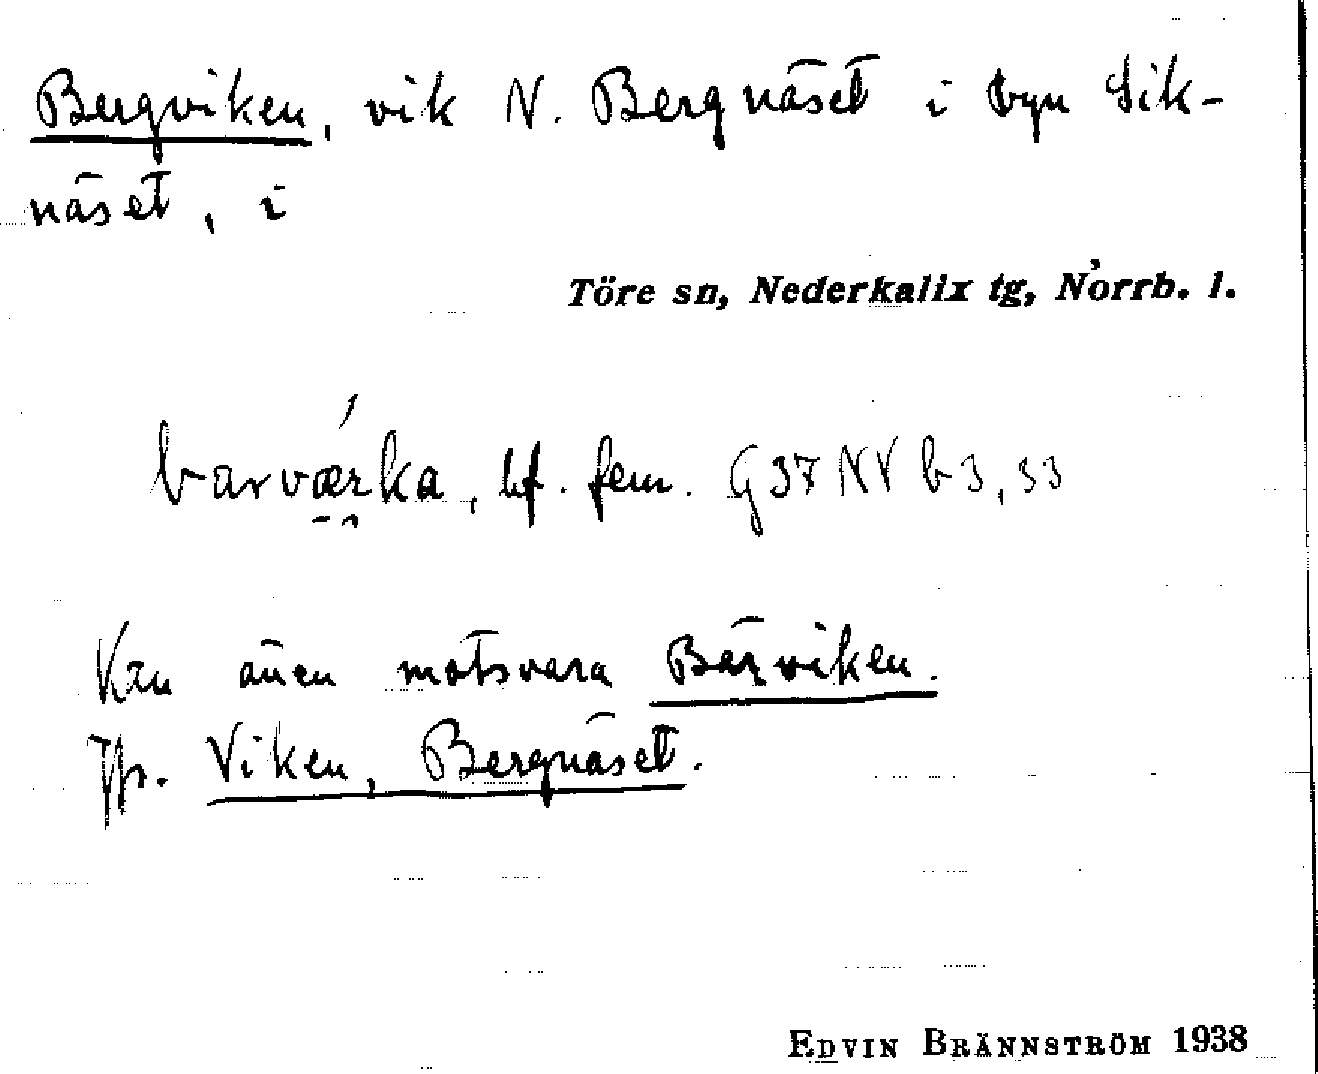 Bergviken, vik N. Bergnäset i byn Sik-
näset, i
Töre sn, Nederkalix tg, Norrb. l.
barværka, bf. fem. G 37 NV b 3, 33
Kan även motsvara Bärviken.
Jfr. Viken, Bergnäset.
EDVIN BRÄNNSTRÖM 1938